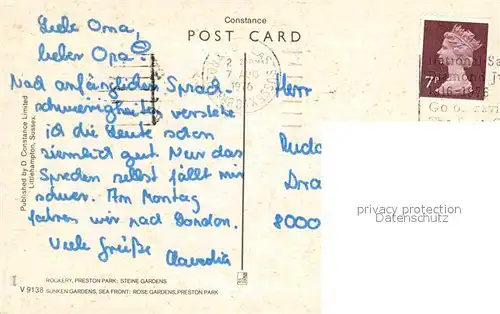 Constance
POST CARD
Liebe Oma,
lieber Opa!
Nach anfänglichen Sprach-
schwierigkeiten verstehe
ich die Leute schon
ziemlich gut. Nur das
Sprechen selbst fällt mir
schwer. Am Montag
fahren wir nach London.
Viele Grüße Claudia
Herr
8000
7P
7 AUG
1976
National Sa
1916-1976
Go on savi
Published by D. Constance Limited
Littlehampton, Sussex.
privacy protection
Datenschutz
ROCKERY, PRESTON PARK: STEINE GARDENS
V 9138 SUNKEN GARDENS, SEA FRONT: ROSE GARDENS, PRESTON PARK